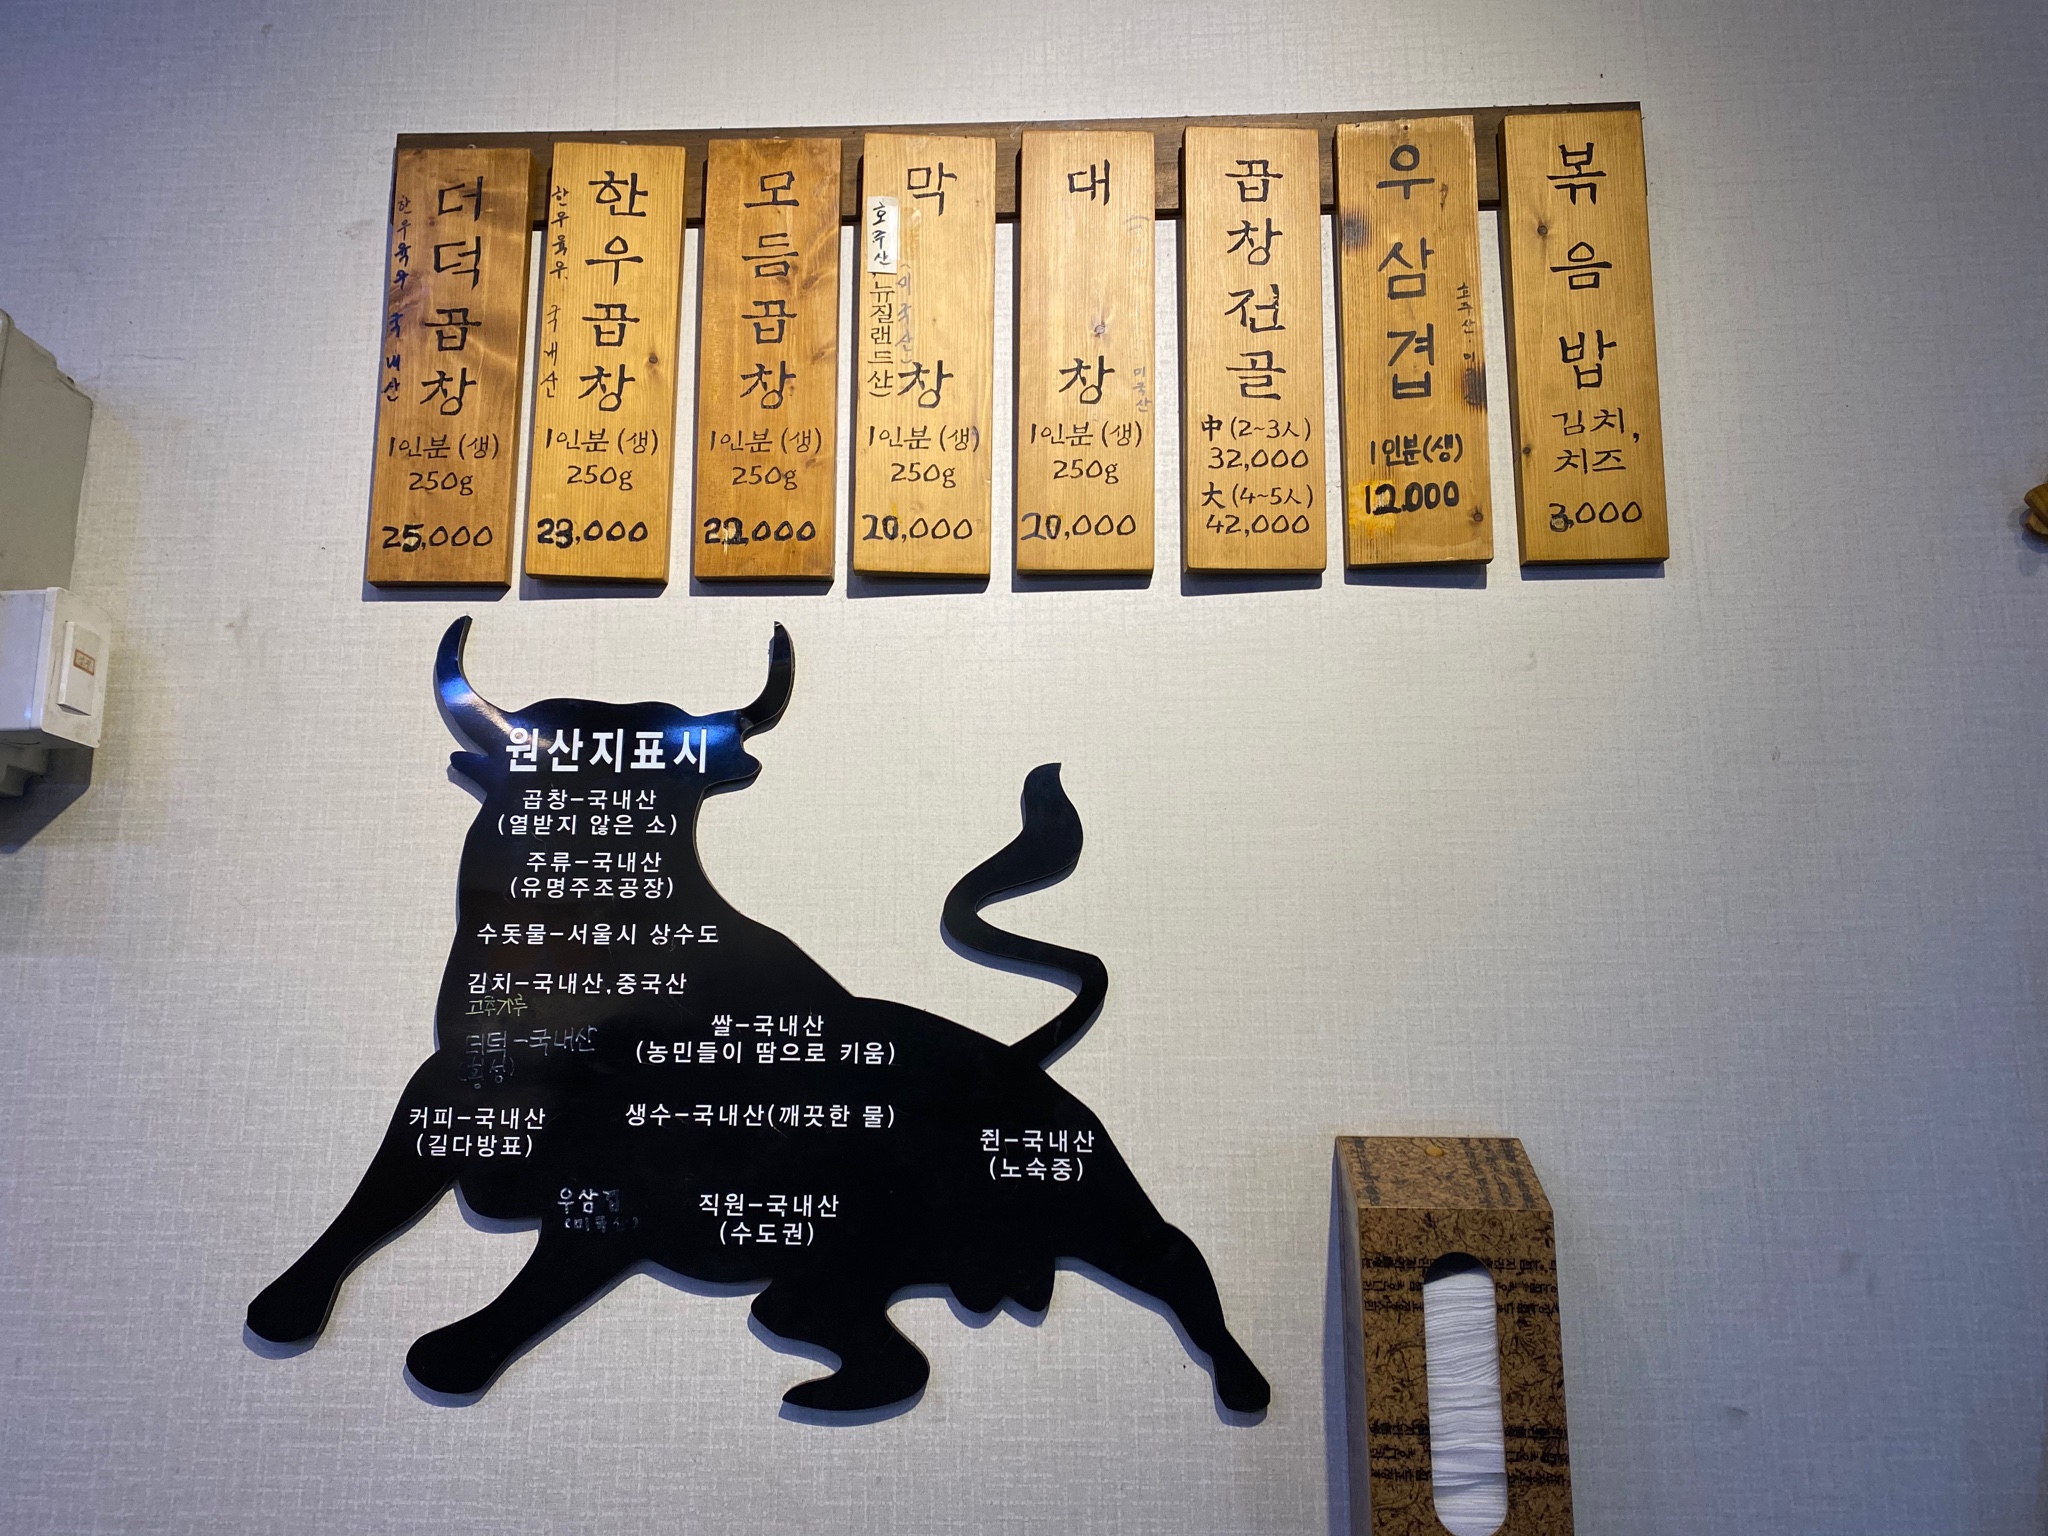 더덕곱창
한우육우 국내산
1인분(생)
250g
25,000
한우곱창
한우육우. 국내산
1인분(생)
250g
23,000
모듬곱창
1인분(생)
250g
22,000
막창
호주산
뉴질랜드산)
(미국산)
1인분(생)
250g
20,000
대창
미국산
1인분(생)
250g
20,000
곱창전골
中(2~3人)
32,000
大(4~5人)
42,000
우삼겹
호주산
1인분(생)
12,000
볶음밥
김치,
치즈
3,000
원산지표시
곱창-국내산
(열받지 않은 소)
주류-국내산
(유명주조공장)
수돗물-서울시 상수도
김치-국내산,중국산
고추가루
더덕-국내산
(횡성)
쌀-국내산
(농민들이 땀으로 키움)
커피-국내산
(길다방표)
생수-국내산(깨끗한 물)
쥔-국내산
(노숙중)
우삼겹
(미국산)
직원-국내산
(수도권)